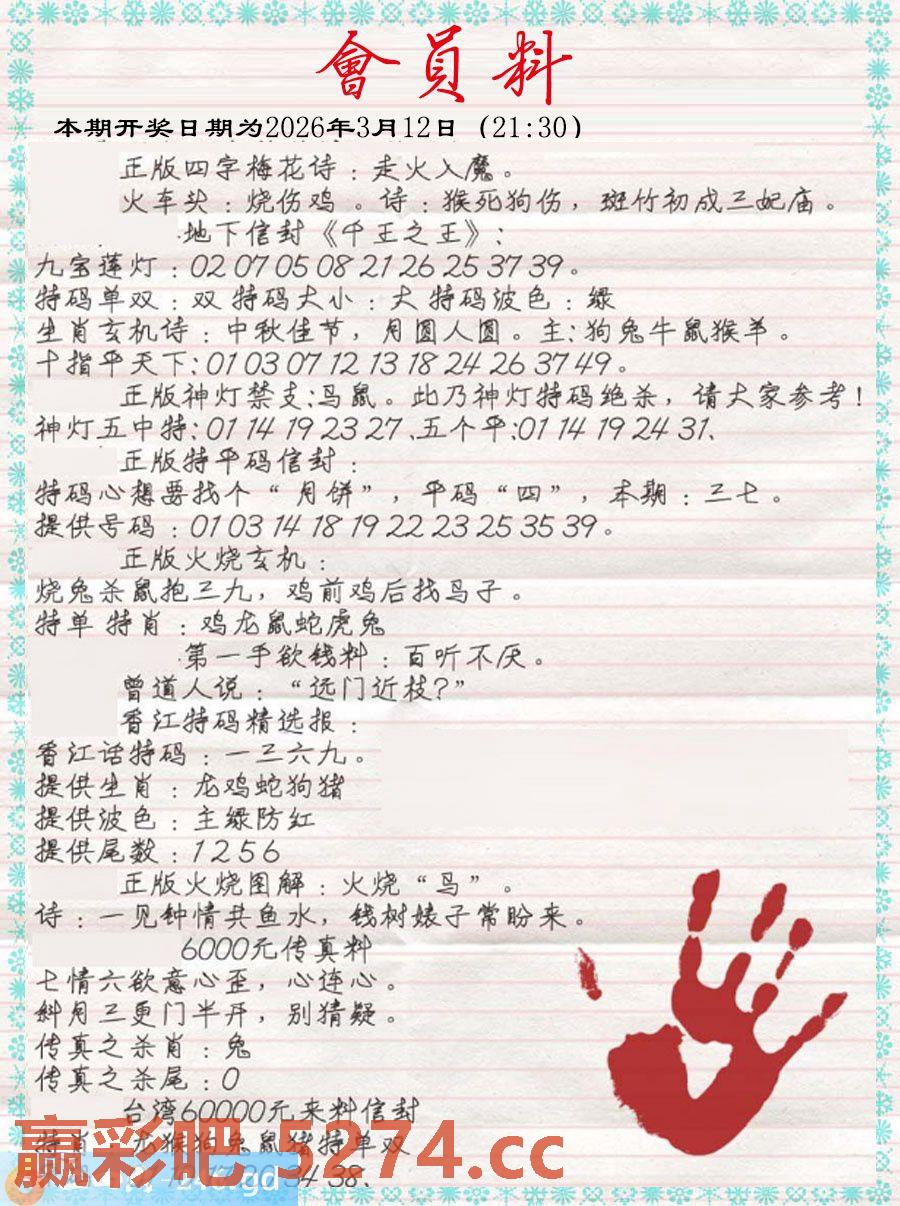 會員料
本期开奖日期为2026年3月12日（21:30）
正版四字梅花诗：走火入魔。
火车头：烧伤鸡。诗：猴死狗伤，斑竹初成三妃庙。
地下信封《千王之王》：
九宝莲灯：02 07 05 08 21 26 25 37 39。
特码单双：双 特码大小：大 特码波色：绿
生肖玄机诗：中秋佳节，月圆人圆。主：狗兔牛鼠猴羊。
十指平天下：01 03 07 12 13 18 24 26 37 49。
正版神灯禁支：马鼠。此乃神灯特码绝杀，请大家参考！
神灯五中特：01 14 19 23 27、五个平：01 14 19 24 31、
正版特平码信封：
特码心想要找个“月饼”，平码“四”，本期：三七。
提供号码：01 03 14 18 19 22 23 25 35 39。
正版火烧玄机：
烧兔杀鼠抱三九，鸡前鸡后找马子。
特单 特肖：鸡龙鼠蛇虎兔
第一手欲钱料：百听不厌。
曾道人说：“远门近枝？”
香江特码精选报：
香江话特码：一三六九。
提供生肖：龙鸡蛇狗猪
提供波色：主绿防红
提供尾数：1 2 5 6
正版火烧图解：火烧“马”。
诗：一见钟情共鱼水，钱树婊子常盼来。
6000元传真料
七情六欲意心歪，心连心。
斜月三更门半开，别猜疑。
传真之杀肖：兔
传真之杀尾：0
台湾60000元来料信封
特肖：龙猴狗兔鼠猪特单双
34 38、
赢彩吧.5274.cc